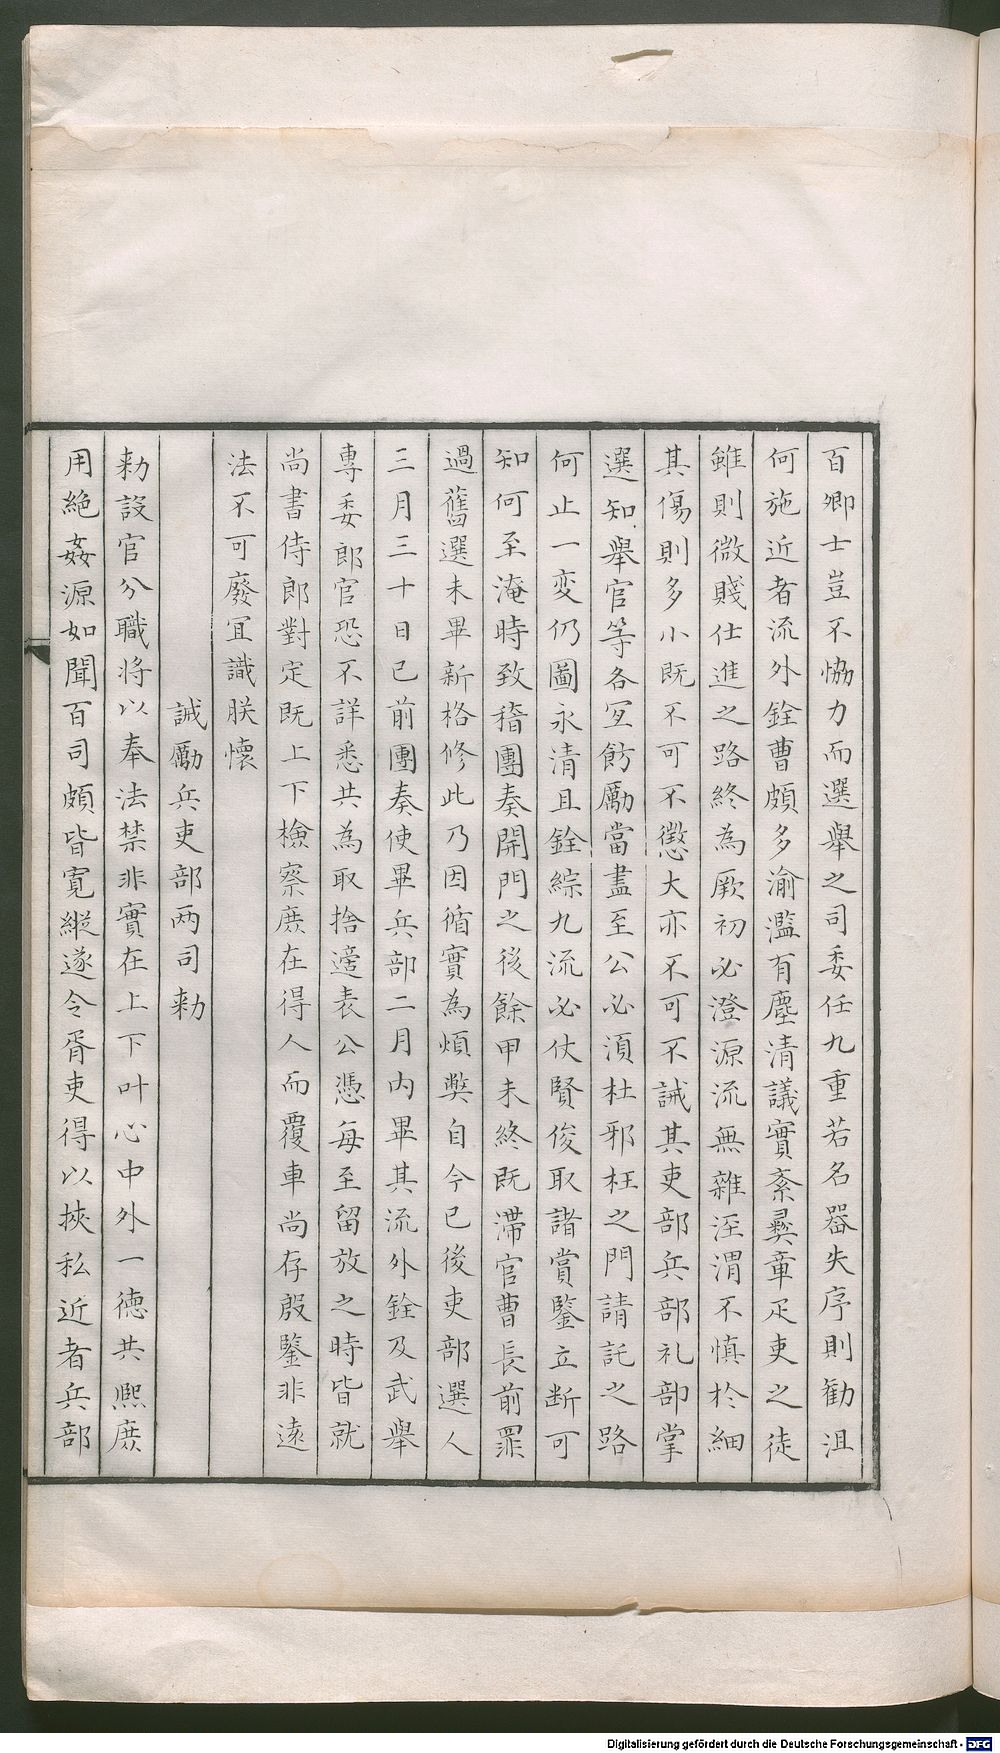 百卿士豈不恊力而選舉之司委任九重若名器失序則勸沮
何施近者流外銓曹頗多渝濫有塵清議實紊彛章疋吏之徒
雖則微賤仕進之路終為厥初必澄源流無雜涇渭不慎於細
其傷則多小既不可不懲大亦不可不誡其吏部兵部礼部掌
選知舉官等各冝飭勵當盡至公必湏杜邪枉之門請託之路
何止一変仍圖永清且銓綜九流必仗賢俊取諸賞鑒立断可
知何至淹時致稽團奏開門之後餘甲未終既滯官曹長前罪
過舊選未畢新格修此乃因循實為煩獘自今已後吏部選人
三月三十日已前團奏使畢兵部二月內畢其流外銓及武舉
專委郎官恐不詳悉共為取捨適表公憑每至留放之時皆就
尚書侍郎對定既上下檢察庶在得人而覆車尚存殷鑒非遠
法不可廢冝識朕懷
誡勵兵吏部兩司勑
勑設官分職將以奉法禁非實在上下叶心中外一德共熈庶
用絶姦源如聞百司頗皆寛縱遂令胥吏得以挾私近者兵部
Digitalisierung gefördert durch die Deutsche Forschungsgemeinschaft - DFG